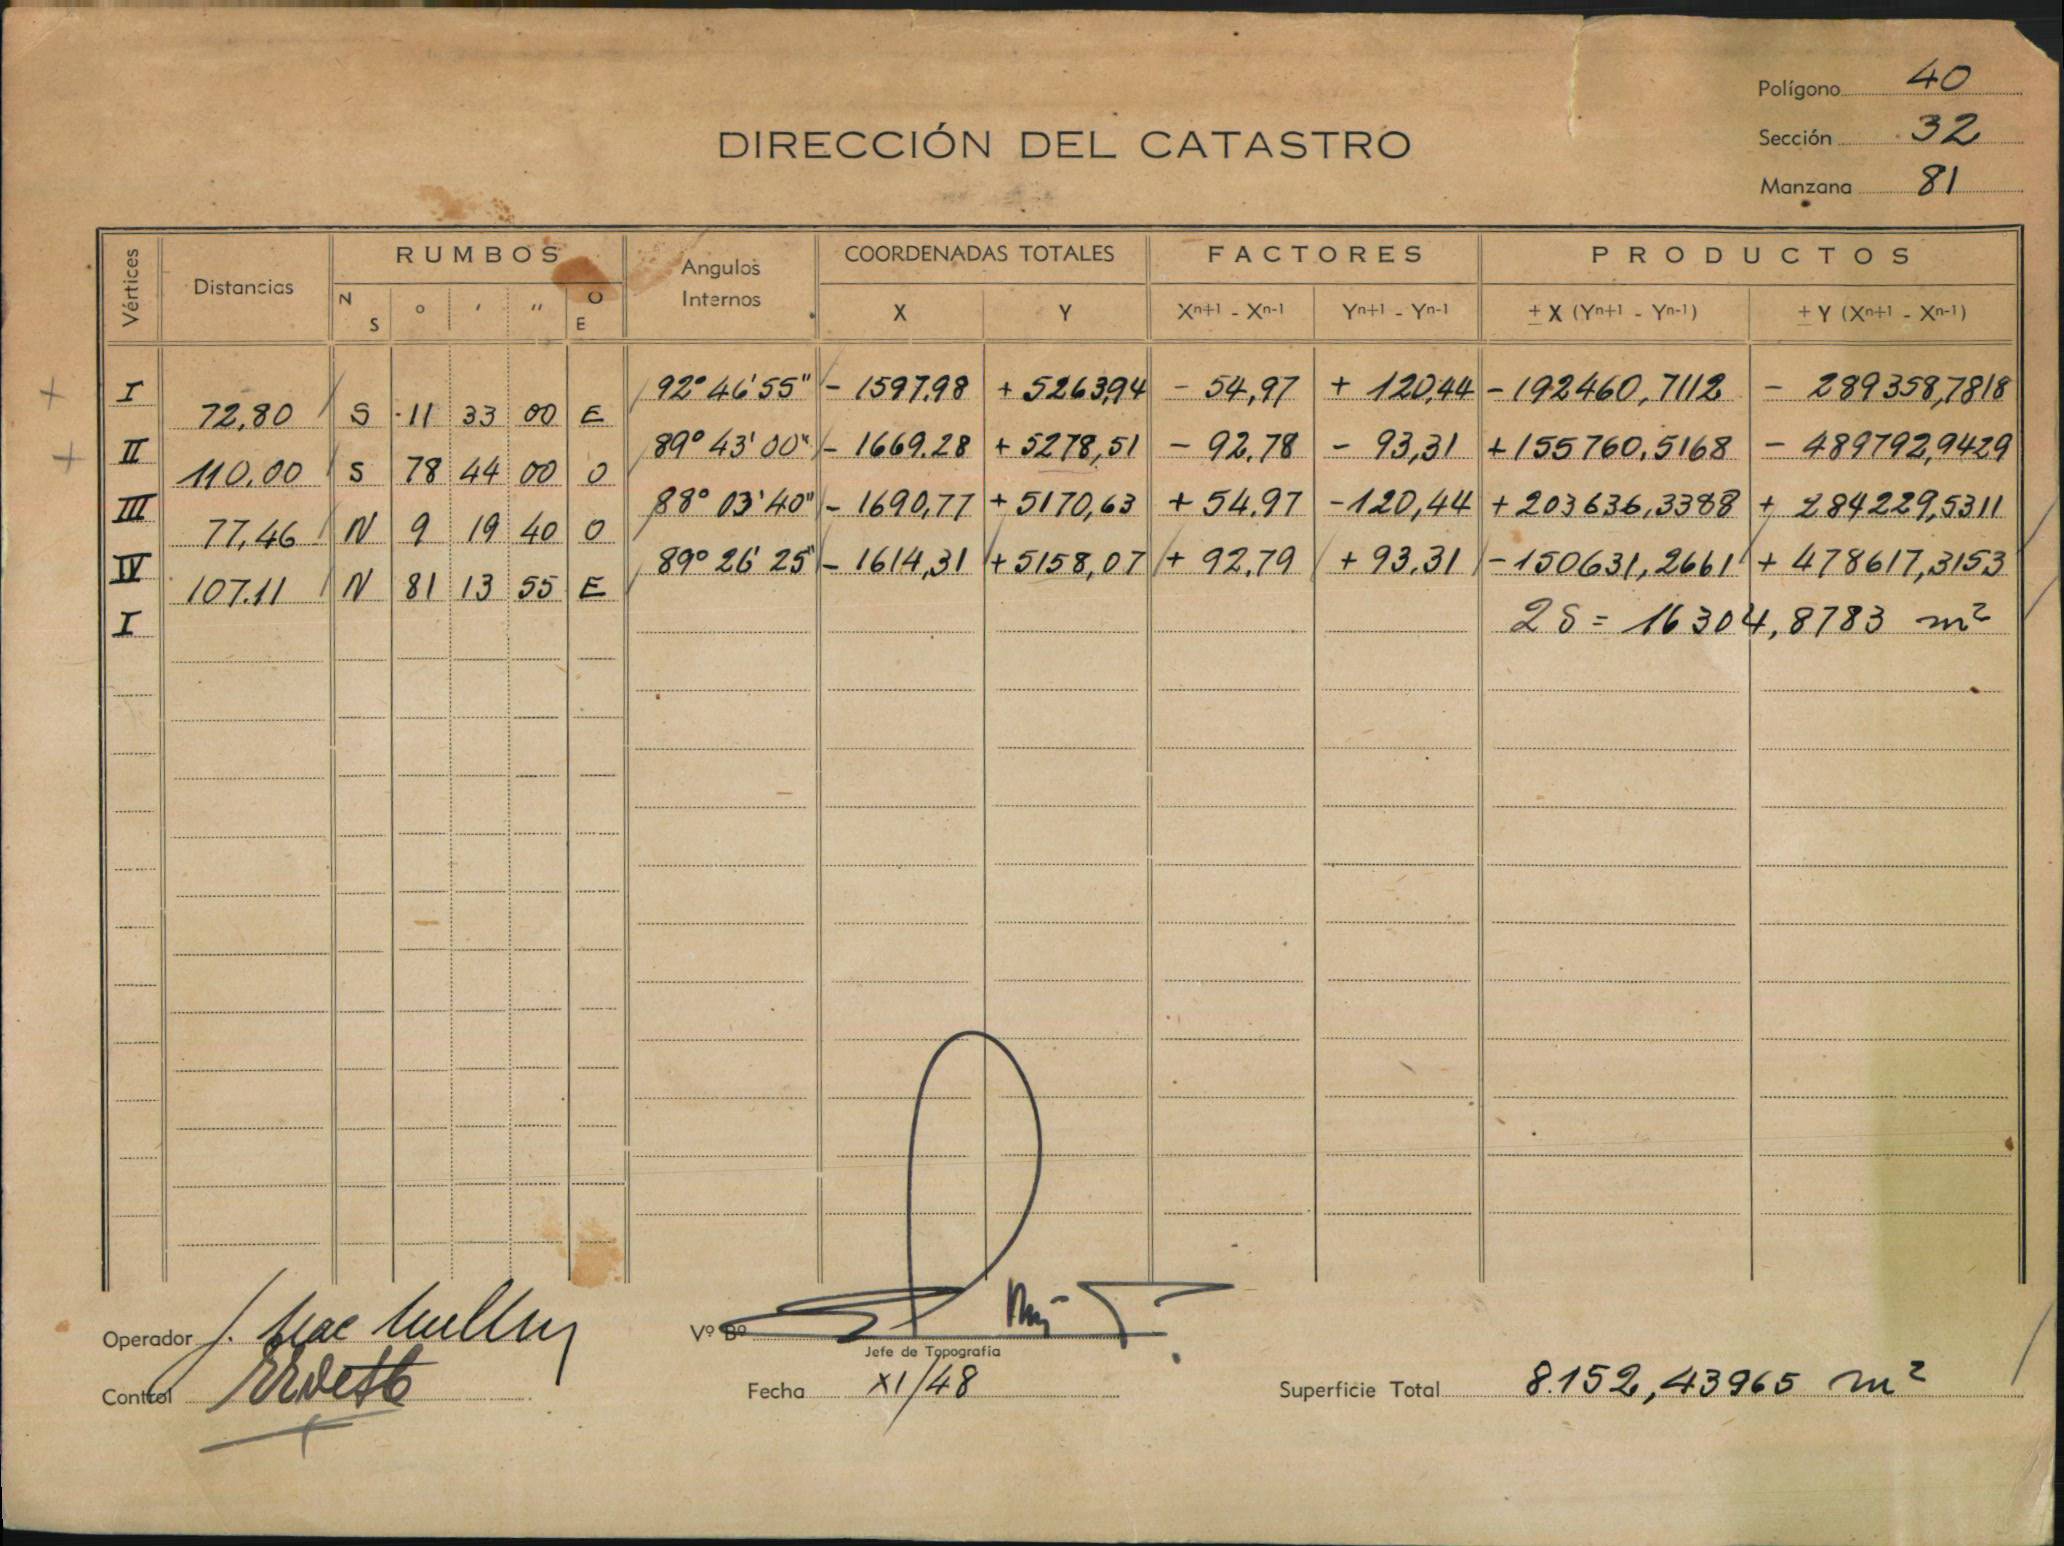 Polígono 40
DIRECCIÓN DEL CATASTRO
Sección 32
Manzana 81
Vértices Distancias RUMBOS Angulos Internos COORDENADAS TOTALES FACTORES PRODUCTOS
N S ° ' '' O E X Y Xn+1 - Xn-1 Yn+1 - Yn-1 ± X (Yn+1 - Yn-1) ± Y (Xn+1 - Xn-1)
I 92° 46' 55" - 1597,98 + 5263,94 - 54,97 + 120,44 - 192460,7112 - 289358,7818
72,80 S 11 33 00 E
II 89° 43' 00" - 1669.28 + 5278,51 - 92.78 - 93,31 + 155760.5168 - 489792,9429
110.00 S 78 44 00 O
III 88° 03' 40" - 1690,77 + 5170,63 + 54.97 - 120,44 + 203636,3388 + 284229,5311
77,46 N 9 19 40 O
IV 89° 26' 25" - 1614,31 + 5158,07 + 92,79 + 93.31 - 150631,2661 + 478617,3153
107.11 N 81 13 55 E
I 2S = 16304,8783 m²
Operador J. Mac
Vº Bº
Jefe de Topografía
Control
Fecha XI/48
Superficie Total 8.152,43965 m²